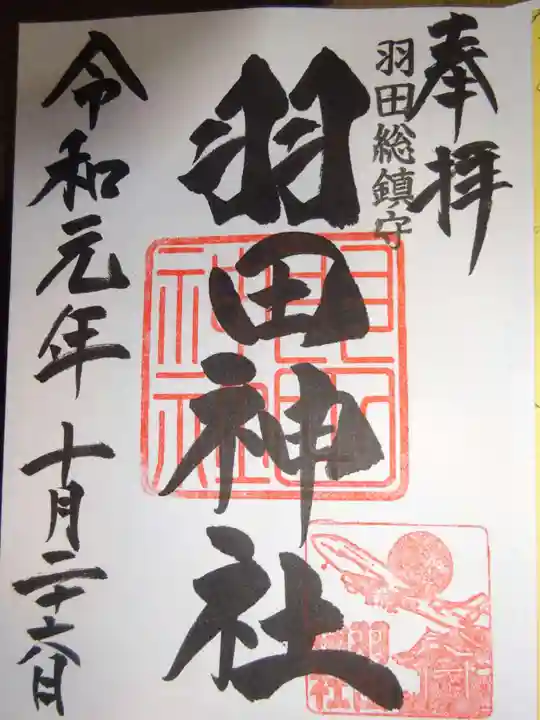 奉拝
羽田総鎮守
羽田神社
令和元年十月二十六日
羽田神社
羽田神社